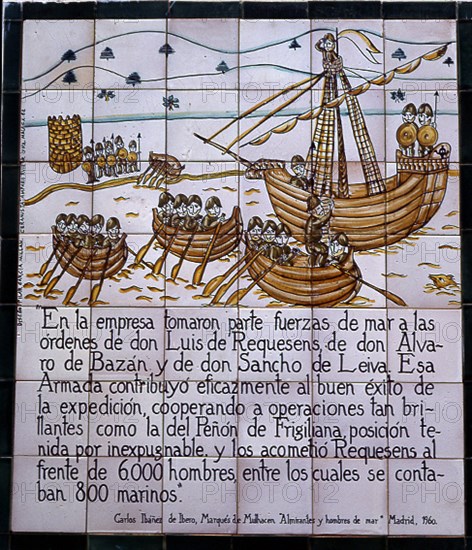 "En la empresa tomaron parte fuerzas de mar a las
órdenes de don Luis de Requesens, de don Alva-
ro de Bazán, y de don Sancho de Leiva. Esa
Armada contribuyó eficazmente al buen éxito de
la expedición, cooperando a operaciones tan bri-
llantes como la del Peñón de Frigiliana, posición te-
nida por inexpugnable, y los acometió Requesens al
frente de 6.000 hombres, entre los cuales se conta-
ban 800 marinos".
Carlos Ibáñez de Ibero, Marqués de Mulhacen. "Almirantes y hombres de mar" Madrid, 1960.